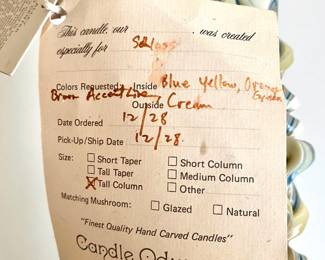 This candle, our , was created
especially for
Colors Requested: Inside Blue Yellow, Orange
Brown Accent Line Outside Cream
Date Ordered 12/28
Pick-Up/Ship Date 12/28
Size: Short Taper Short Column
Tall Taper Medium Column
X Tall Column Other
Matching Mushroom: Glazed Natural
"Finest Quality Hand Carved Candles"
Candle